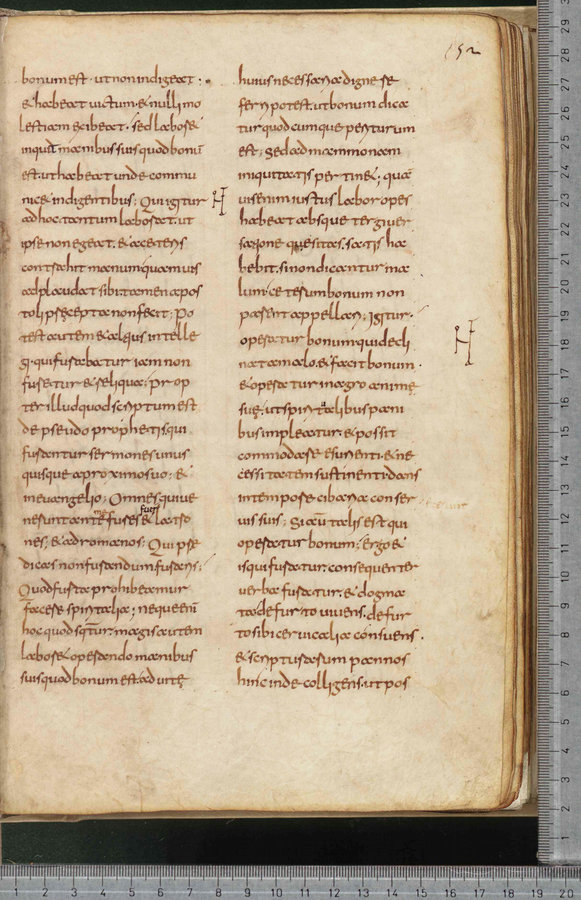 152
bonum est · ut non indigeat ·
& habeat uictum & nulli mo
lestiam exibeat · sed labor&
inquit manibus suis quod bonū
est · ut habeat unde commu
nic& indigentibus; Qui igitur
adhoc tantum laborat · ut
ipse non egeat · & a ceteris
contrahit manum quamuis
adplaudat sibi · tamen apos
toli p̄cepta non fecit; Po
test autem & aliqus intelle
gi · qui furabatur iam non
furetur & reliqua; prop
ter illud quod scriptum est
de pseudo prophetis qui
furantur sermones unus
quisque a proximo suo; &
in euangelio; Omnes qui ue
nerunt ante me fures fuer̄ & latro
nes; & ad romanos; Qui prę
dicas non furandum furaris;
Quod furta prohibeamur
facere spiritalia; neque enī
hoc quod sq̄tur · magis autem
labor& operando manibus
suis quod bonum est · ad uitę
huius necessaria digne re
ferri potest · ut bonum dica
tur quodcumque periturum
est; Sed ad mammonam
iniquitatis pertin&; qua
uis enim iustus labor opes
habeat absque tergiuer
satione quesitas · satis ha
bebit · si non dicantur ma
lum · ceterum bonum non
parient appellari; Igitur ·
operatur bonum qui decli
nat a malo · & facit bonum ·
& operatur in agro animę
suę · ut spiritalibus pani
bus impleatur · & possit
commodare esurienti · & ne
cessitatem sustinenti · dans
in tempore cibaria conser
uis suis; Si aū talis est qui
operatur bonum; ergo &
is qui furatur · consequenter
uerba furatur · & dogma
ta de furto uiuens · de fur
to sibi ceruicalia consuens ·
& scripturarum pannos
hinc inde colligens · ut pos